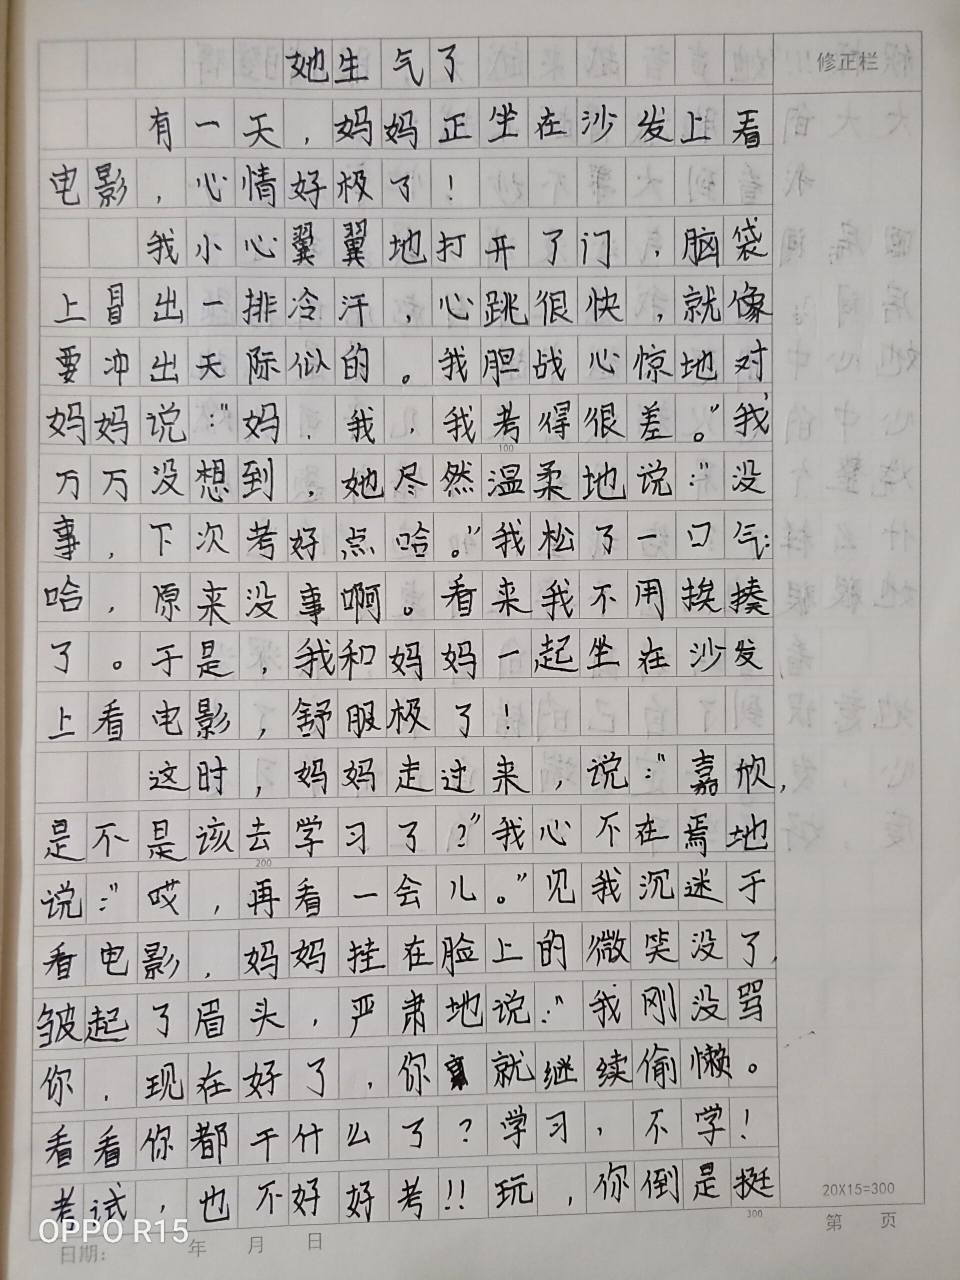 她生气了
修正栏
有一天，妈妈正坐在沙发上看
电影，心情好极了！
我小心翼翼地打开了门，脑袋
上冒出一排冷汗，心跳很快，就像
要冲出天际似的。我胆战心惊地对
妈妈说：“妈，我，我考得很差。”我
100
万万没想到，她尽然温柔地说：“没
事，下次考好点哈。”我松了一口气：
哈，原来没事啊。看来我不用挨揍
了。于是，我和妈妈一起坐在沙发
上看电影，舒服极了！
这时，妈妈走过来，说：“嘉欣，
是不是该去学习了？”我心不在焉地
200
说：“哎，再看一会儿。”见我沉迷于
看电影，妈妈挂在脸上的微笑没了，
皱起了眉头，严肃地说：“我刚没骂
你，现在好了，你就继续偷懒。
看看你都干什么了？学习，不学！
考试，也不好好考！！玩，你倒是挺
20X15=300
300
第 页
OPPO R15
日期： 年 月 日